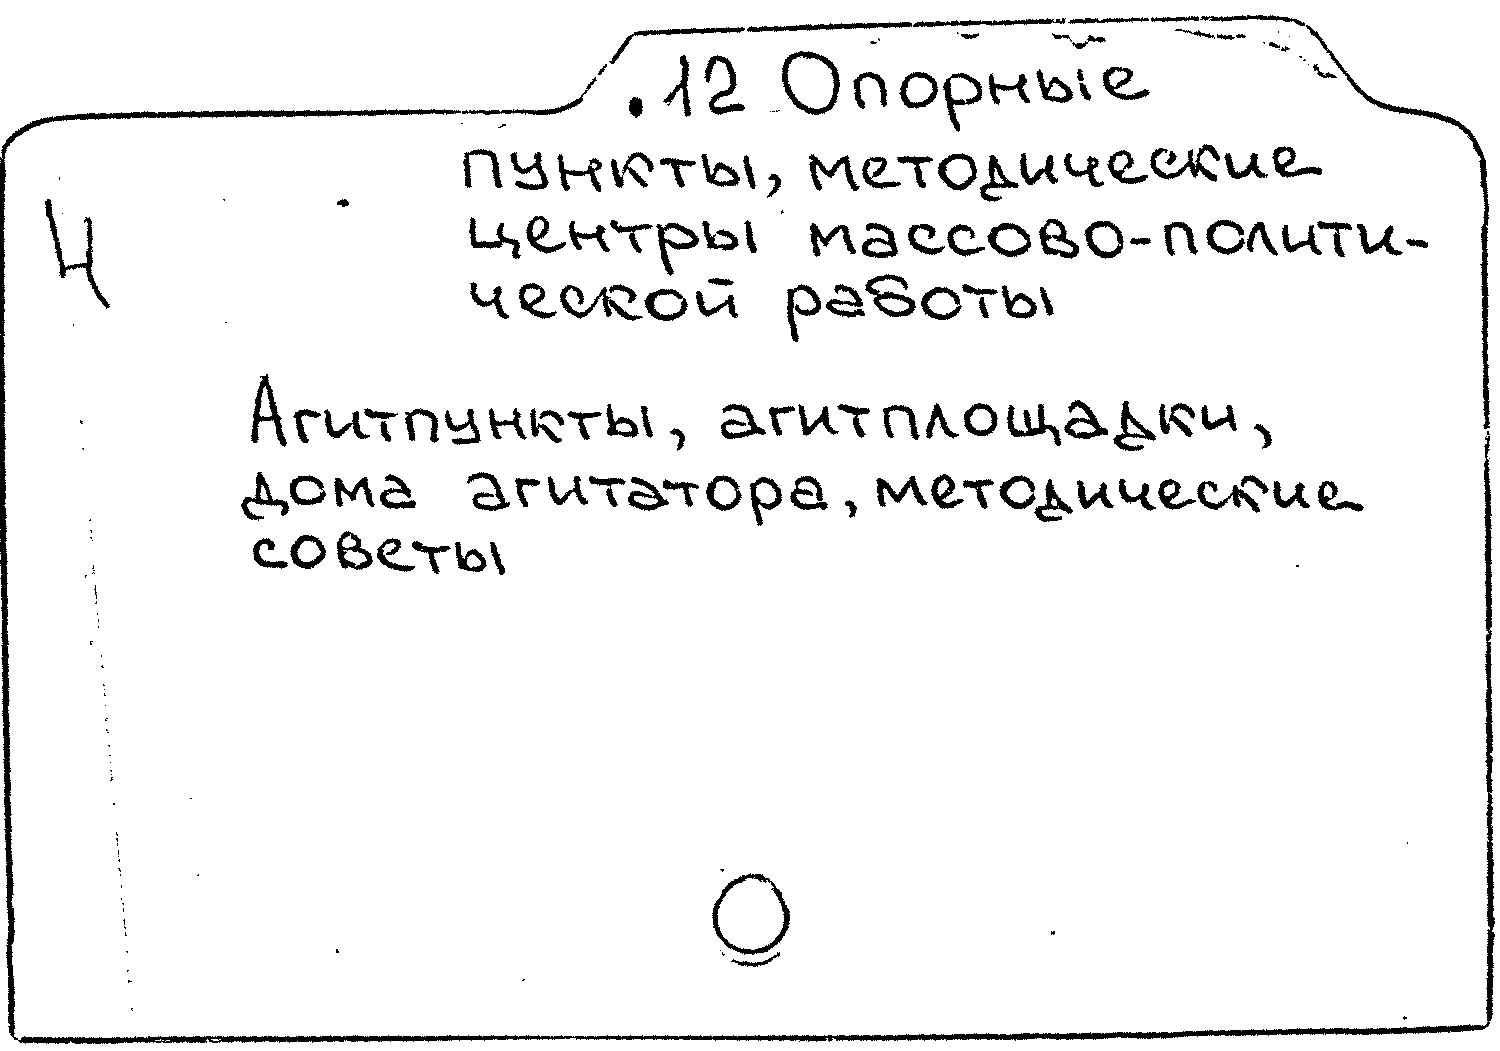 .12 Опорные
пункты, методические
центры массово-полити-
ческой работы
4
Агитпункты, агитплощадки,
дома агитатора, методические
советы